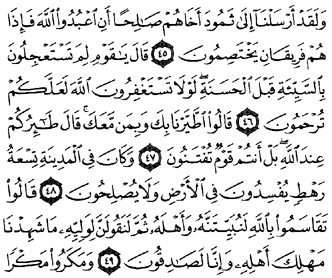 وَلَقَدْ أَرْسَلْنَآ إِلَىٰ ثَمُودَ أَخَاهُمْ صَٰلِحًا أَنِ ٱعْبُدُوا۟ ٱللَّهَ فَإِذَا
هُمْ فَرِيقَانِ يَخْتَصِمُونَ ٤٥ قَالَ يَٰقَوْمِ لِمَ تَسْتَعْجِلُونَ
بِٱلسَّيِّئَةِ قَبْلَ ٱلْحَسَنَةِ ۖ لَوْلَا تَسْتَغْفِرُونَ ٱللَّهَ لَعَلَّكُمْ
تُرْحَمُونَ ٤٦ قَالُوا۟ ٱطَّيَّرْنَا بِكَ وَبِمَن مَّعَكَ ۚ قَالَ طَٰٓئِرُكُمْ
عِندَ ٱللَّهِ ۖ بَلْ أَنتُمْ قَوْمٌ تُفْتَنُونَ ٤٧ وَكَانَ فِى ٱلْمَدِينَةِ تِسْعَةُ
رَهْطٍ يُفْسِدُونَ فِى ٱلْأَرْضِ وَلَا يُصْلِحُونَ ٤٨ قَالُوا۟
تَقَاسَمُوا۟ بِٱللَّهِ لَنُبَيِّتَنَّهُۥ وَأَهْلَهُۥ ثُمَّ لَنَقُولَنَّ لِوَلِيِّهِۦ مَا شَهِدْنَا
مَهْلِكَ أَهْلِهِۦ وَإِنَّا لَصَٰدِقُونَ ٤٩ وَمَكَرُوا۟ مَكْرًا